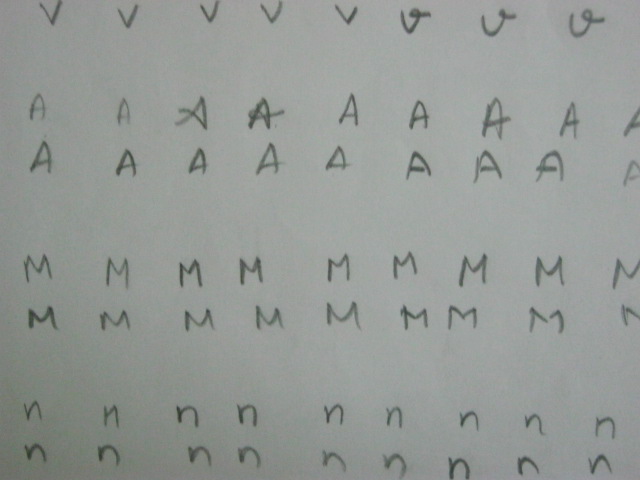 v v v v v v v v
A A A A A A A A A
A A A A A A A A A
M M M M M M M M M
M M M M M M M M M
n n n n n n n n n
n n n n n n n n n